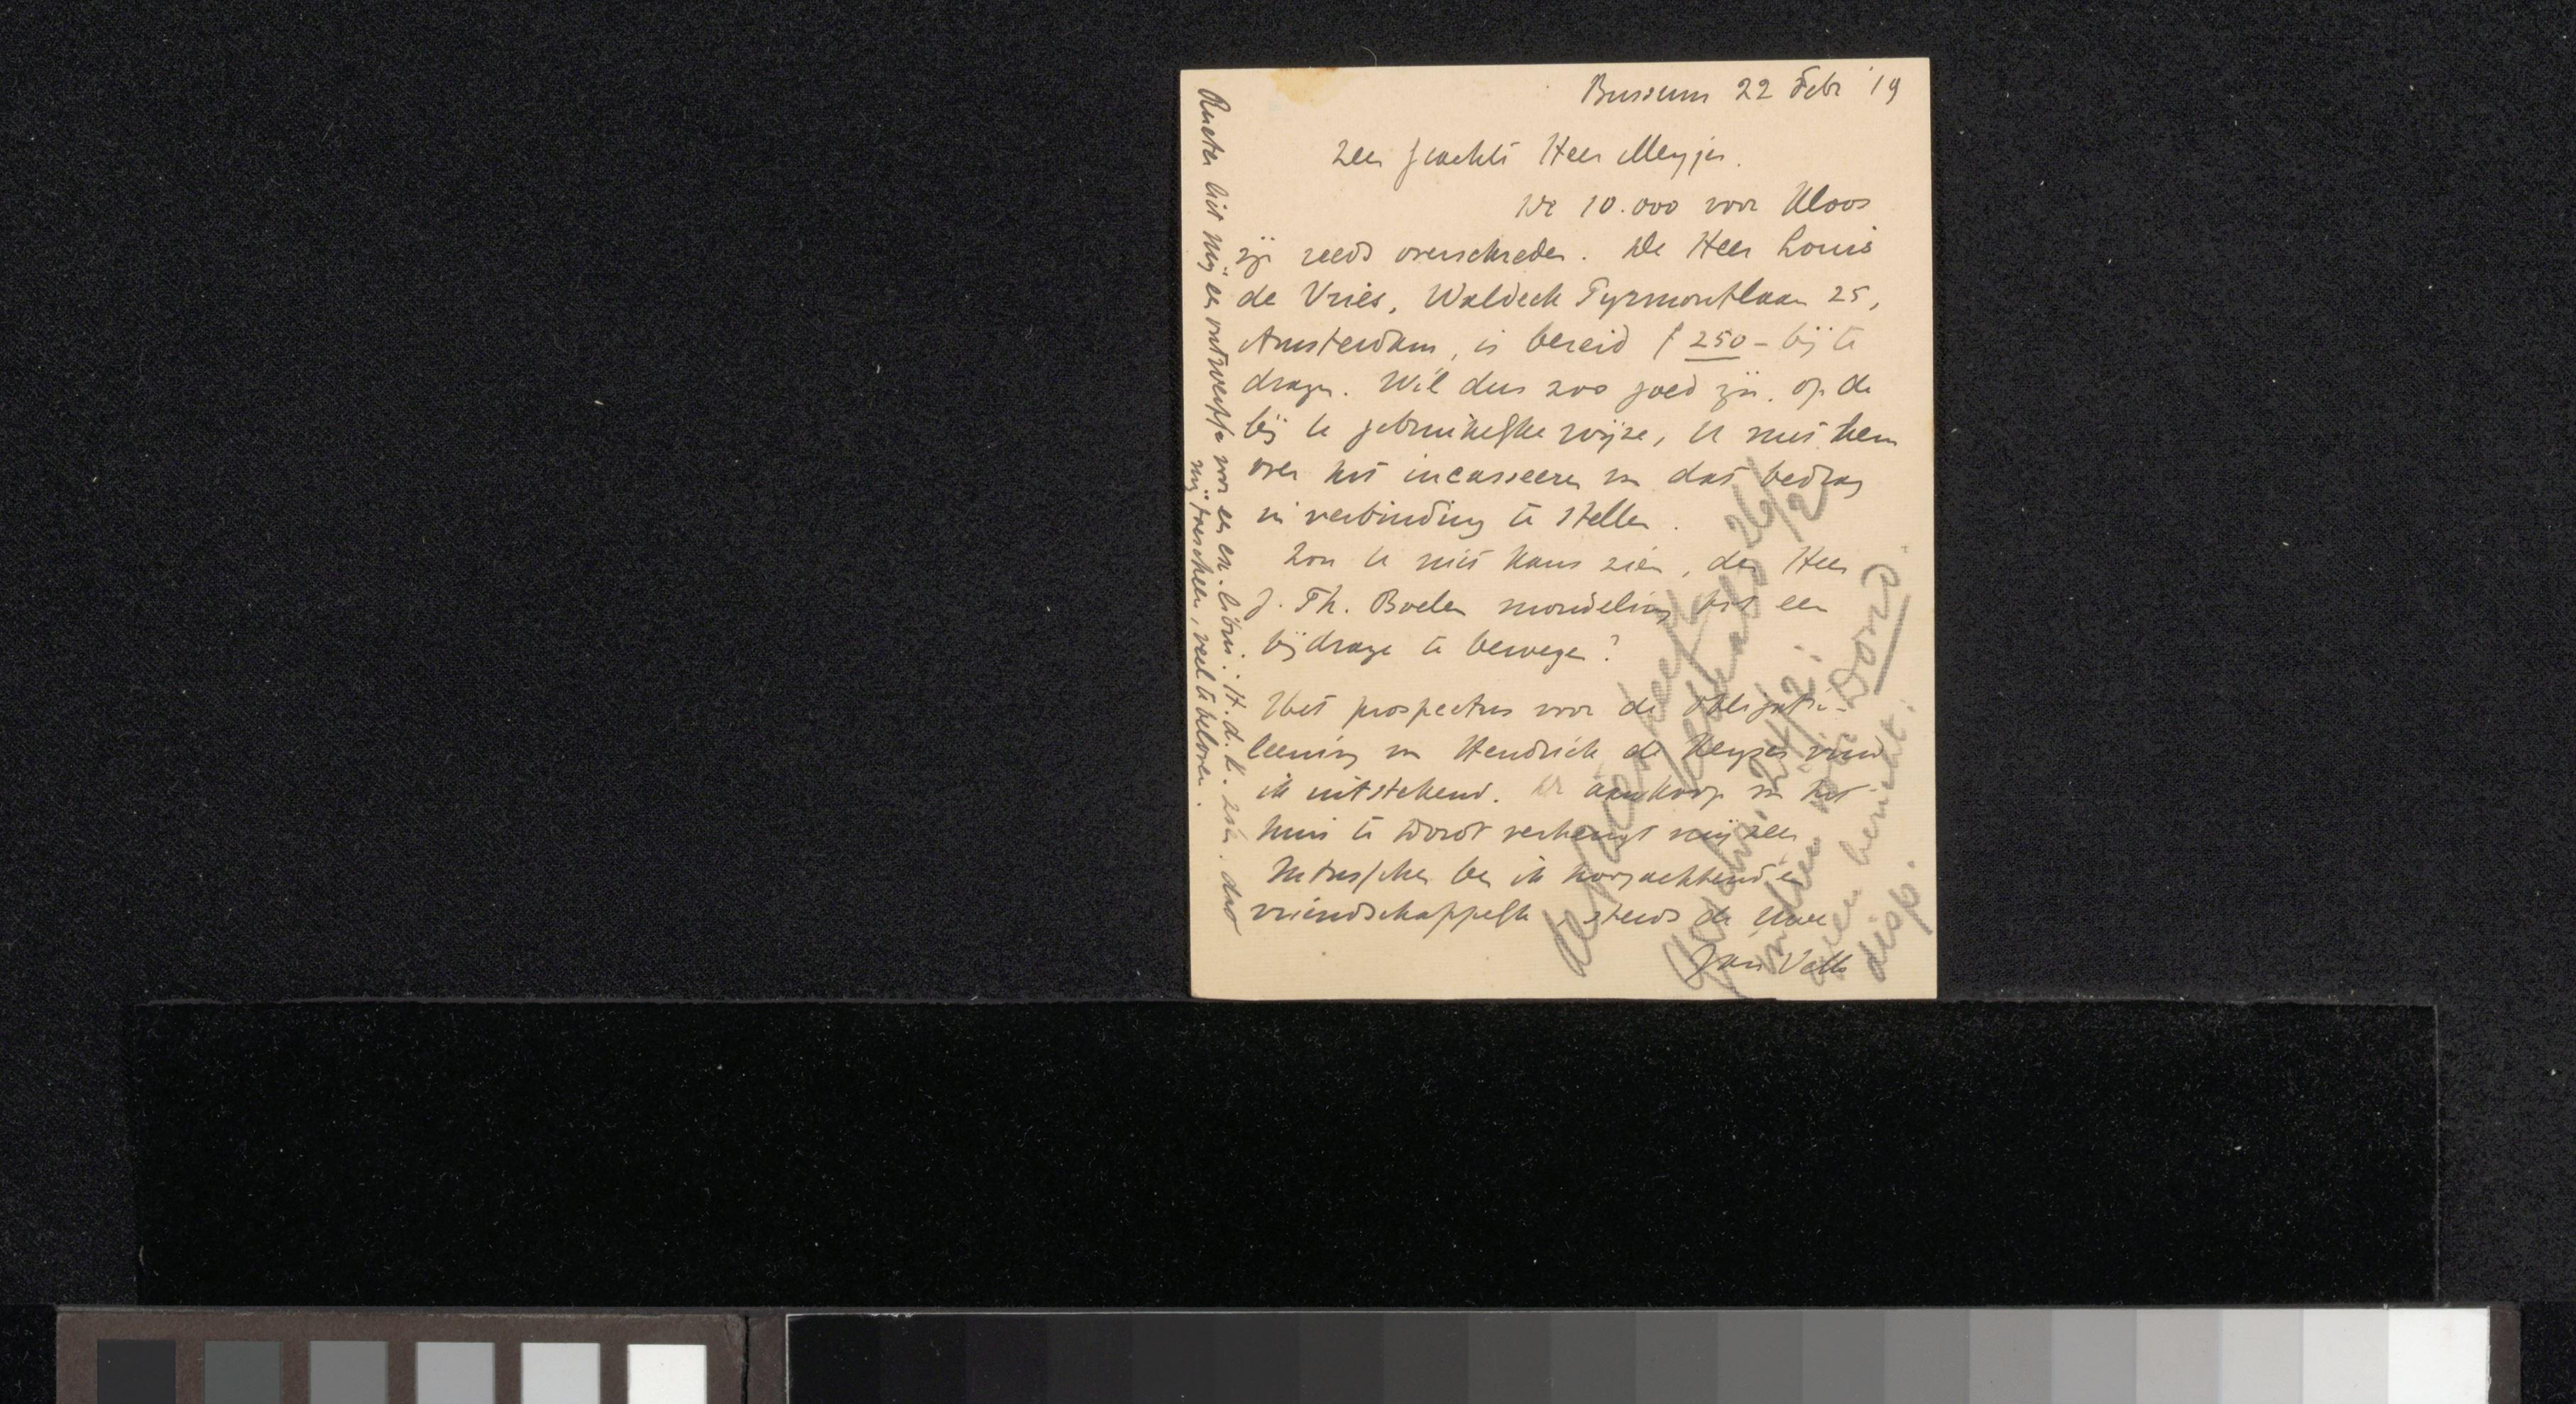 Bussum 22 Febr '19
Zeer geachte Heer Meyjes.
De 10.000 voor Kloos
zijn reeds overschreden. De Heer Louis
de Vries, Waldeck Pyrmontlaan 25,
Amsterdam, is bereid f 250 - bij te
dragen. Wil dus zoo goed zijn, op de
bij U gebruikelijke wijze, U met hem
over het incasseeren van dat bedrag
in verbinding te stellen.
Zou U niet kans zien, den Heer
J. Th. Boelen mondeling tot een
bijdrage te bewegen?
Het prospectus voor de obligatie-
leening van Hendrick de Keyser vind
ik uitstekend. De aankoop van het
huis te Dordt verheugt mij zeer
Intusschen ben ik hoogachtend en
vriendschappelijk steeds de Uwe
Jan Veth
liet mij een ontwerpje voor een ex-libris. H. d. K. zien, dat
mij toescheen, veel te beloven.
26/2
24/2
bericht.
disp.